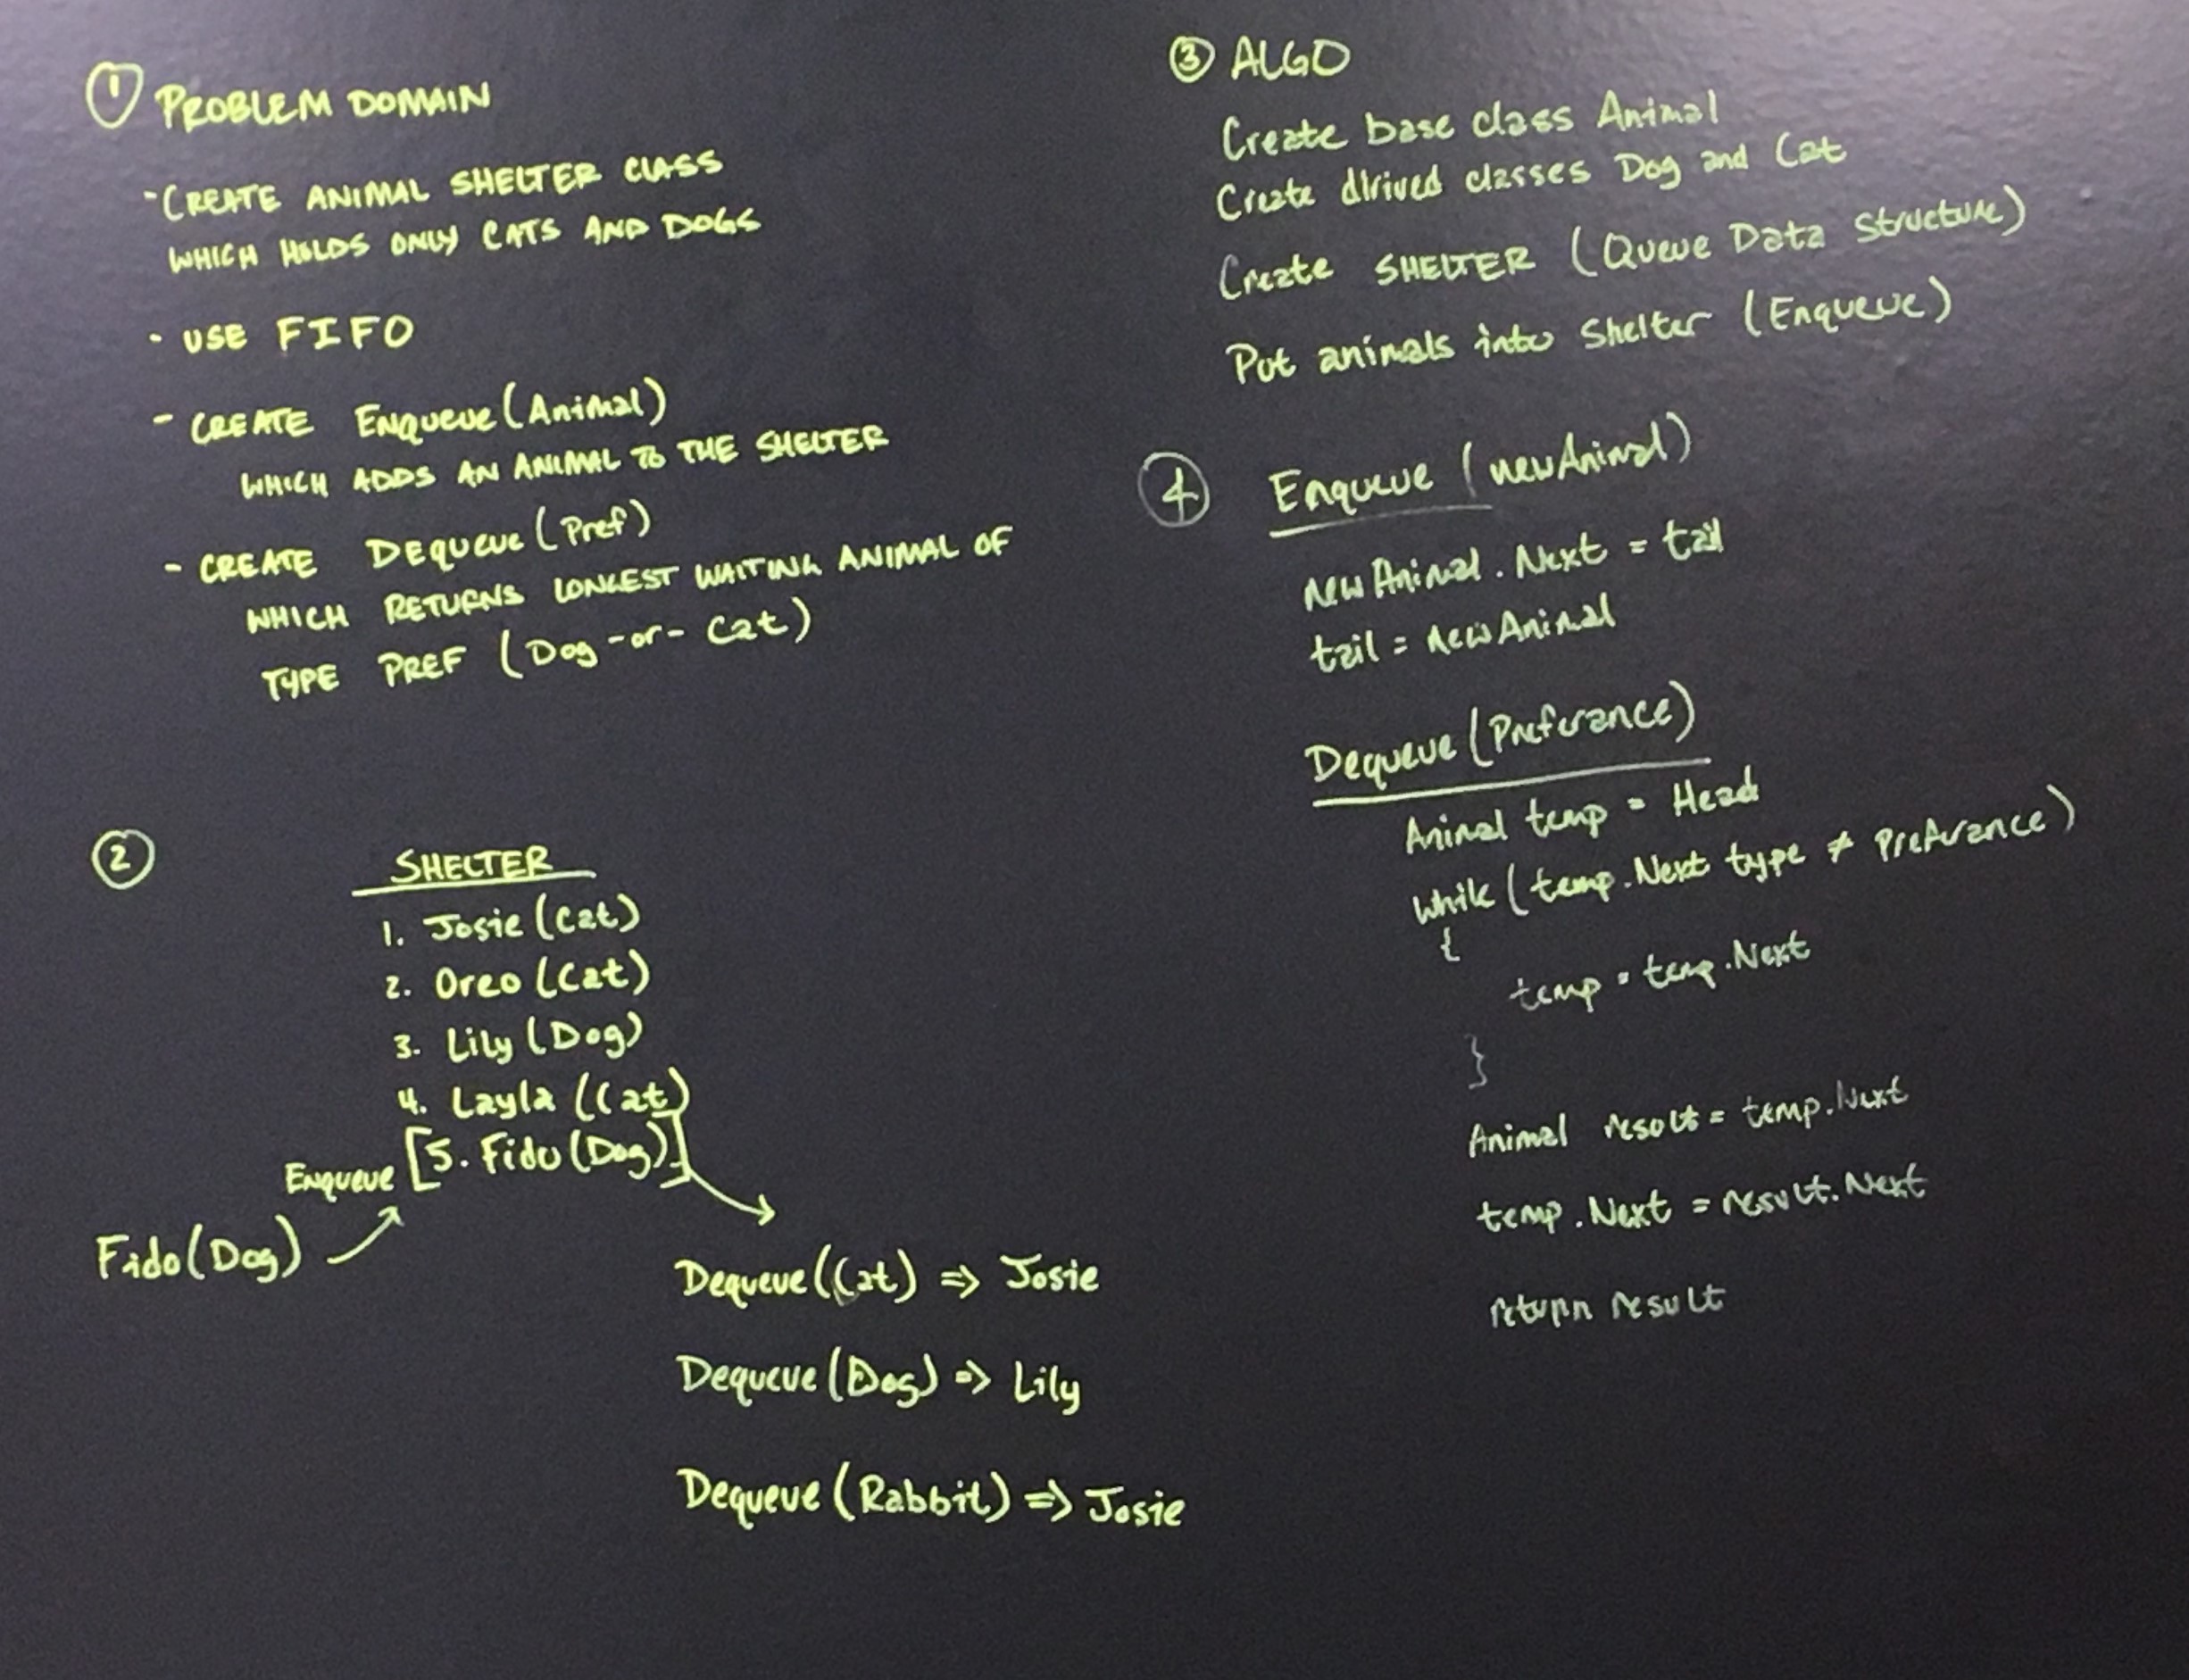 ① PROBLEM DOMAIN
- CREATE ANIMAL SHELTER CLASS
WHICH HOLDS ONLY CATS AND DOGS
· USE FIFO
- CREATE ENQUEUE(ANIMAL)
WHICH ADDS AN ANIMAL TO THE SHELTER
- CREATE DEQUEUE(Pref)
WHICH RETURNS LONGEST WAITING ANIMAL OF
TYPE PREF (Dog -or- Cat)
②
SHELTER
1. Josie (Cat)
2. Oreo (Cat)
3. Lily (Dog)
4. Layla (Cat)
Enqueue [5. Fido (Dog)]
Fido(Dog)
Dequeue(Cat) => Josie
Dequeue(Dog) => Lily
Dequeue(Rabbit) => Josie
③ ALGO
Create base class Animal
Create dirived classes Dog and Cat
Create SHELTER (Queue Data Structure)
Put animals into Shelter (Enqueue)
④ Enqueue (newAnimal)
newAnimal.Next = tail
tail = newAnimal
Dequeue(Preferance)
Animal temp = Head
while (temp.Next type ≠ Preferance)
{
temp = temp.Next
}
Animal result = temp.Next
temp.Next = result.Next
return result